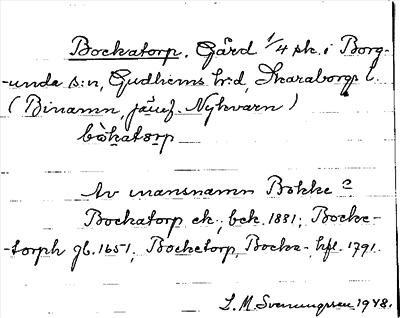 Bockatorp. Gård 1/4 sk. i Borg-
-unda s:n, Gudhems hrd, Skaraborgs l.
(Binamn, jämf. Nykvarn)
bòkatɔrp
Av mansnamn Bokke?
Bockatorp ek. bek. 1881; Bocke-
-torph jb. 1651; Bocketorp, Bocka- hfl. 1791.
L. M. Svenungsson 1948.